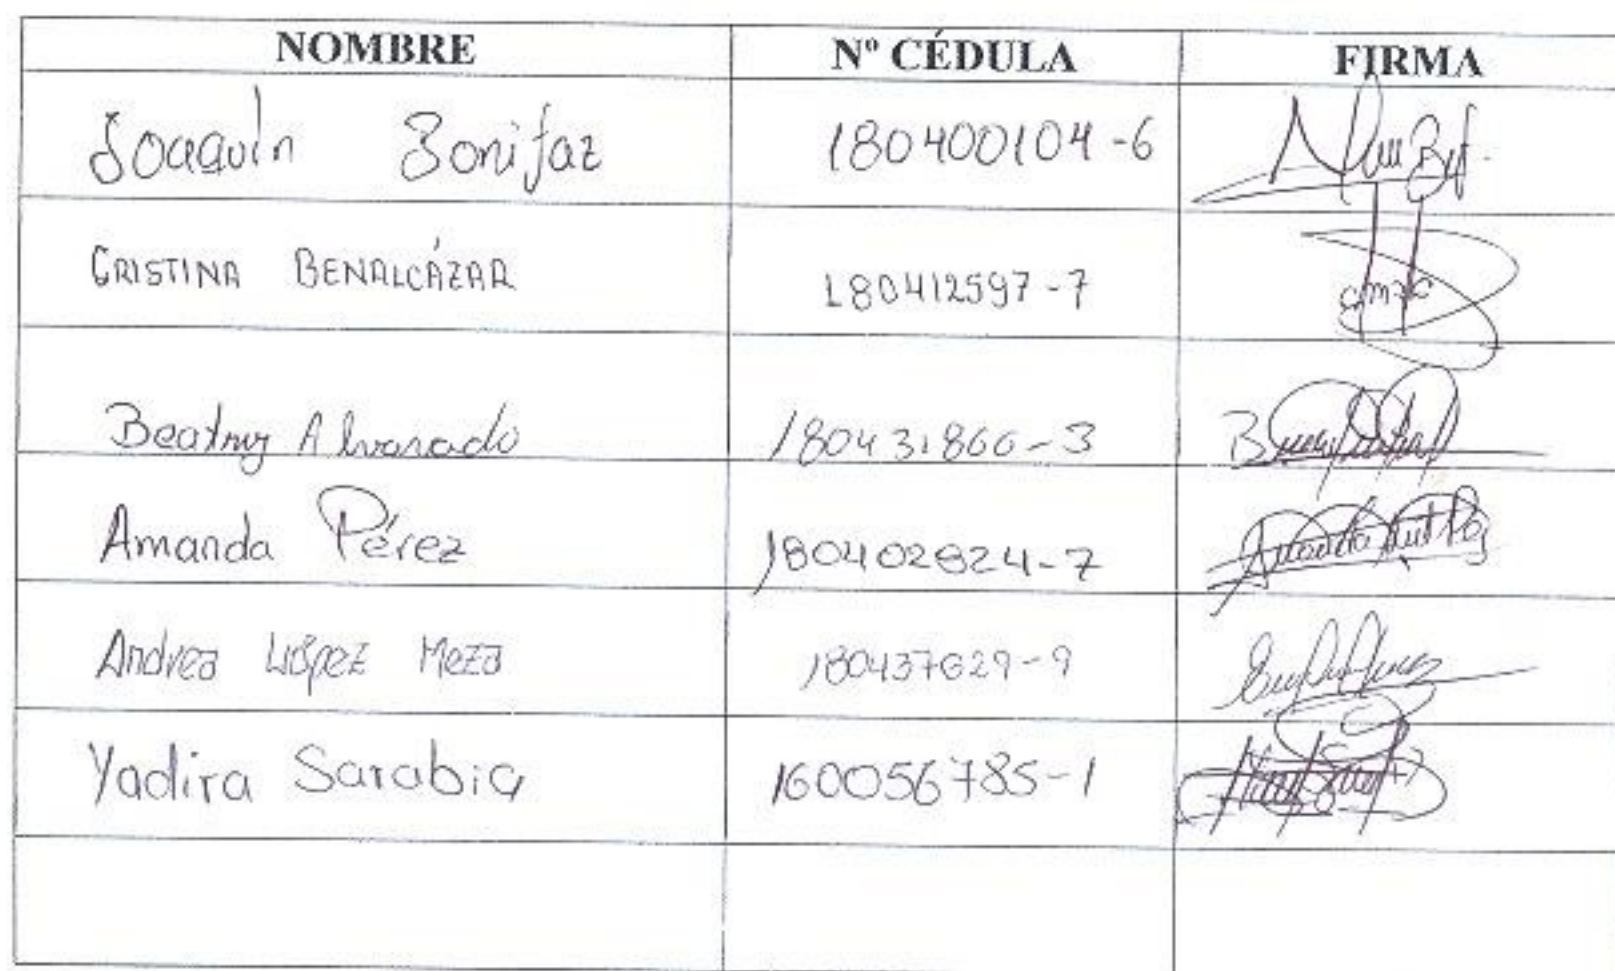 NOMBRE Nº CÉDULA FIRMA
Joaquín Bonifaz 180400104-6
CRISTINA BENALCÁZAR 180412597-7
Beatriz Alvarado 180431866-3
Amanda Pérez 180402824-7
Andrea López Meza 180437629-9
Yadira Sarabia 160056785-1